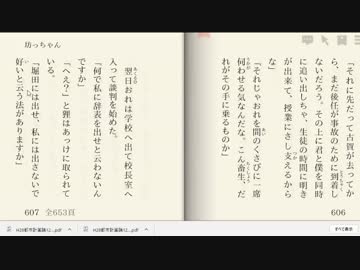 坊っちゃん
「それに先だって古賀が去ってか
ら、まだ後任が事故のために到着し
ないだろう。その上に君と僕を同時
に追い出しちゃ、生徒の時間に明き
が出来て、授業にさし支えるから
な」
「それじゃおれを間のくさびに一席
伺わせる気なんだな。こん畜生、だ
れがその手に乗るものか」
翌日おれは学校へ出て校長室へ
入って談判を始めた。
「何で私に辞表を出せと云わないん
ですか」
「へえ？」と狸はあっけに取られて
いる。
「堀田には出せ、私には出さないで
好いと云う法がありますか」
607 全653頁
606
すべて表示